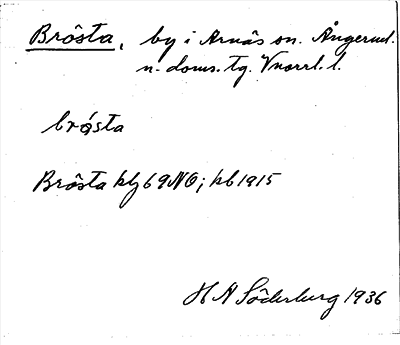 Brösta, by i Arnäs sn. Ångerml.
n. doms. tg. Vnorrl. l.
brǿsta
Brösta kbl 69 NO; kb 1915
H A Söderburg 1936